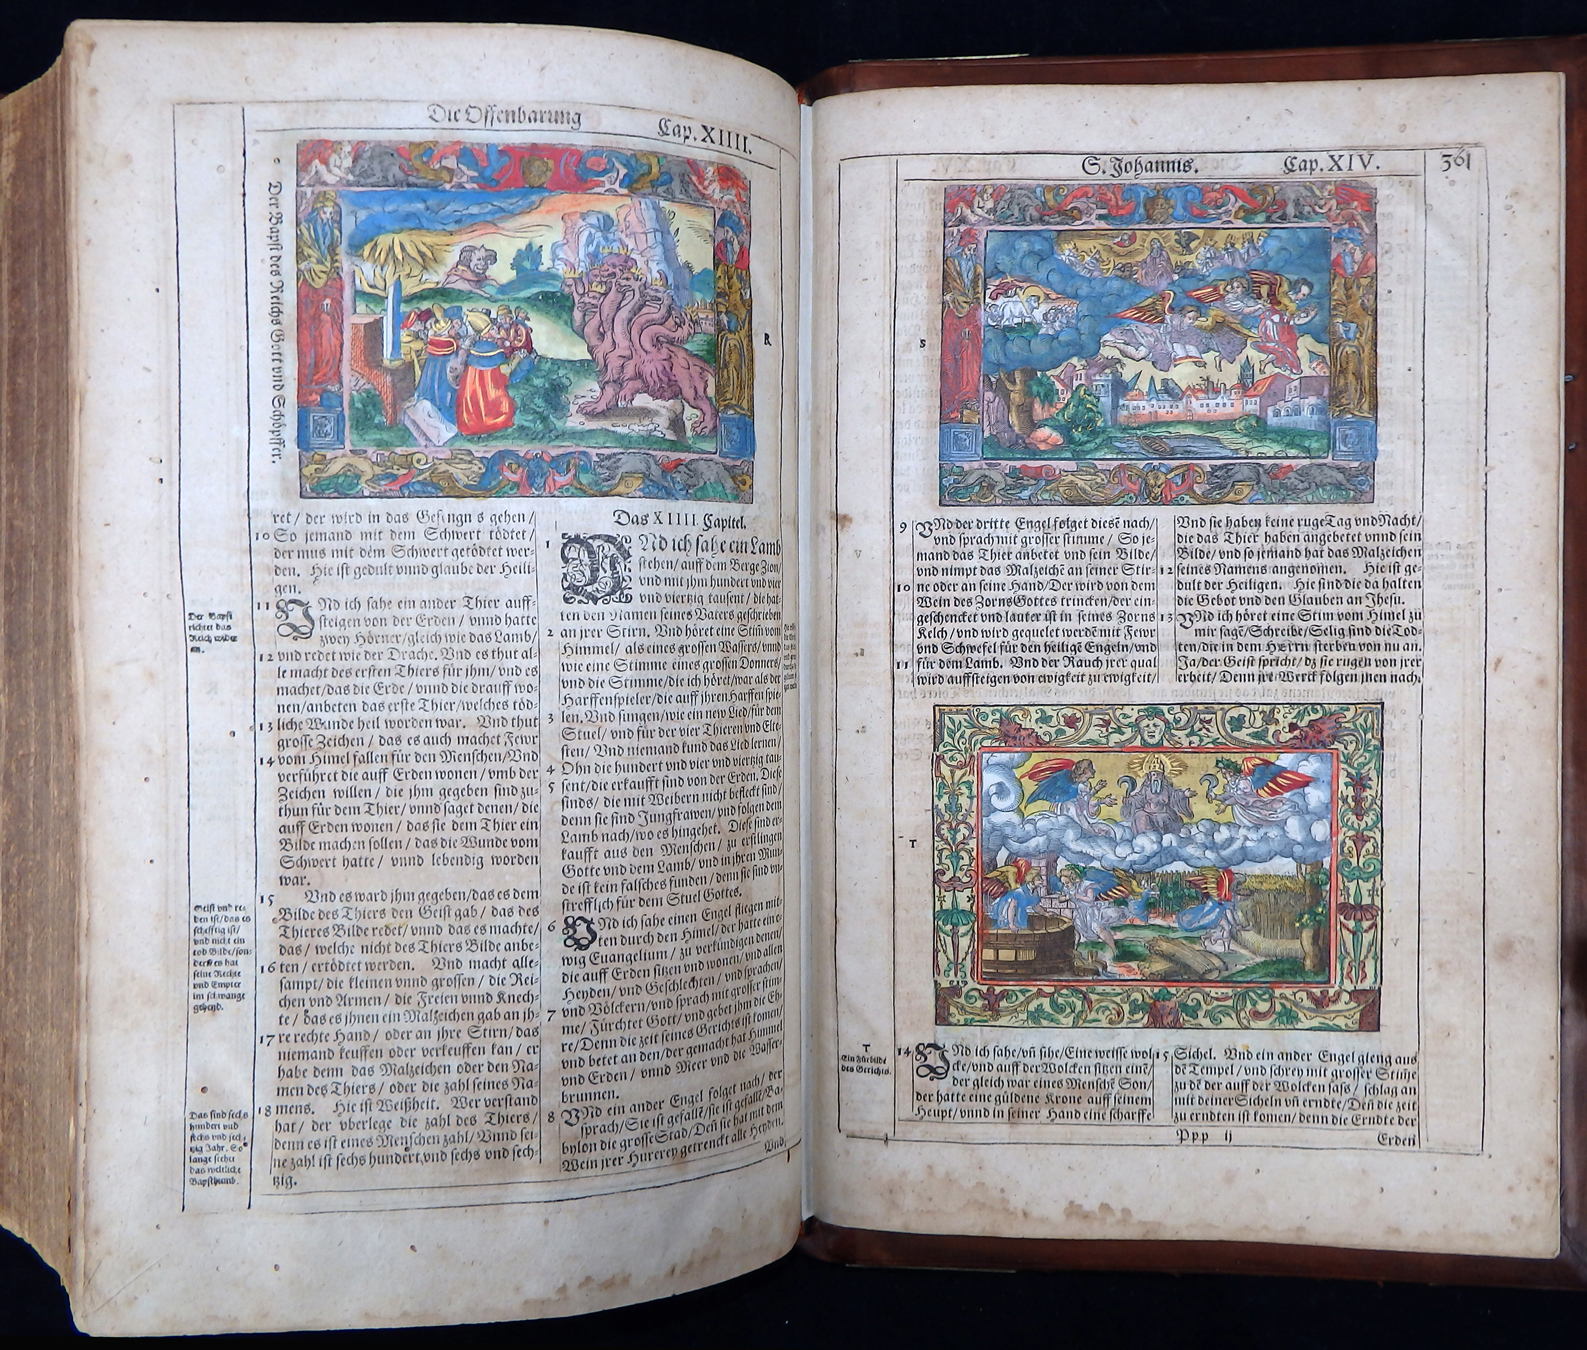 Die Offenbarung
Cap. XIIII.
Der Bapst des Reichs Gott vnd Schöpffer.
R
ret/ der wird in das Gefengn s gehen/
10 So jemand mit dem Schwert tödtet/
der mus mit dem Schwert getödtet wer-
den. Hie ist gedult vnnd glaube der Heili-
gen.
11 VNd ich sahe ein ander Thier auff-
steigen von der Erden/ vnnd hatte
zwey Hörner/gleich wie das Lamb/
12 vnd redet wie der Drache. Vnd es thut al-
le macht des ersten Thiers für jhm/ vnd es
machet/das die Erde/ vnnd die drauff wo-
nen/anbeten das erste Thier/welches töd-
13 liche Wunde heil worden war. Vnd thut
grosse Zeichen/ das es auch machet Fewr
14 vom Himel fallen für den Menschen/Vnd
verführet die auff Erden wonen/vmb der
Zeichen willen/ die jhm gegeben sind zu-
thun für dem Thier/ vnnd saget denen/die
auff Erden wonen/ das sie dem Thier ein
Bilde machen sollen/ das die Wunde vom
Schwert hatte/ vnnd lebendig worden
war.
15 Vnd es ward jhm gegeben/das es dem
Bilde des Thiers den Geist gab/ das des
Thieres Bilde redet/ vnnd das es machte/
das/ welche nicht des Thiers Bilde anbe-
16 ten/ ertödtet werden. Vnd macht alle-
sampt/ die kleinen vnnd grossen/ die Rei-
chen vnd Armen/ die Freien vnnd Knech-
te/ das es jhnen ein Malzeichen gab an jh-
17 re rechte Hand/ oder an jhre Stirn/das
niemand keuffen oder verkeuffen kan/ er
habe denn das Malzeichen oder den Na-
men des Thiers/ oder die zahl seines Na-
18 mens. Hie ist Weißheit. Wer verstand
hat/ der vberlege die zahl des Thiers/
denn es ist eines Menschen zahl/ Vnnd sei-
ne zahl ist sechs hundert vnd sechs vnd sech-
tzig.
Der Bapst
richtet das
Reich wider
an.
Geist vnd re-
den ist/das es
schefftig ist/
vnd nicht ein
tod Bilde/son-
dern es hat
seine Rechte
vnd Empter
im schwange
gehend.
Das sind sechs
hundert vnd
sechs vnd sech-
tzig Jahr. So
lange stehet
das weltliche
Bapsthumb.
Das XIIII. Capitel.
1 VNd ich sahe ein Lamb
stehen/ auff dem Berge Zion/
vnd mit jhm hundert vnd vier
vnd viertzig tausent/ die hat-
ten den Namen seines Vaters geschrieben
2 an jrer Stirn. Vnd höret eine Stim vom
Himmel/ als eines grossen Wassers/ vnnd
wie eine Stimme eines grossen Donners/
vnd die Stimme/die ich höret/war als der
Harffenspieler/die auff jhren Harffen spie-
3 len. Vnd sungen/wie ein new Lied/für dem
Stuel/ vnd für der vier Thieren vnd Elte-
sten/ Vnd niemand kund das Lied lernen/
4 Ohn die hundert vnd vier vnd viertzig tau-
5 sent/die erkaufft sind von der Erden. Diese
sinds/ die mit Weibern nicht befleckt sind/
denn sie sind Jungfrawen/ vnd folgen dem
Lamb nach/wo es hingehet. Diese sind er-
kaufft aus den Menschen/ zu erstlingen
Gotte vnd dem Lamb/ vnd in jhren Mun-
de ist kein falsches funden/ denn sie sind vn-
strefflich für dem Stuel Gottes.
6 VNd ich sahe einen Engel fliegen mit-
ten durch den Himel/der hatte ein e-
wig Euangelium/ zu verkündigen denen/
die auff Erden sitzen vnd wonen/ vnd allen
Heyden/ vnd Geschlechten/ vnd sprachen/
7 vnd Völckern/vnd sprach mit grosser stim-
me/ Fürchtet Gott/ vnd gebet jhm die Eh-
re/Denn die zeit seines Gerichts ist komen/
vnd betet an den/der gemacht hat Himmel
vnd Erden/ vnnd Meer vnd die Wasser-
brunnen.
8 VNd ein ander Engel folget nach/ der
sprach/Sie ist gefallē/sie ist gefallē/Ba-
bylon die grosse Stad/Deñ sie hat mit dem
Wein jrer Hurerey getrenckt alle Heyden.
Vnd
S. Johannis.
Cap. XIV.
361
S
9 VNd der dritte Engel folget diesē nach/
vnd sprach mit grosser stimme/ So je-
mand das Thier anbetet vnd sein Bilde/
vnd nimpt das Malzeichē an seiner Stir-
10 ne oder an seine Hand/Der wird von dem
Wein des Zorns Gottes trincken/der ein-
geschencket vnd lauter ist in seines Zorns
Kelch/ vnd wird gequelet werdē mit Fewr
vnd Schwefel für den heiligē Engeln/vnd
11 für dem Lamb. Vnd der Rauch jrer qual
wird auffsteigen von ewigkeit zu ewigkeit/
Vnd sie haben keine ruge Tag vnd Nacht/
die das Thier haben angebetet vnnd sein
Bilde/ vnd so jemand hat das Malzeichen
12 seines Namens angenomen. Hie ist ge-
dult der Heiligen. Hie sind die da halten
die Gebot vnd den Glauben an Jhesu.
13 VNd ich höret eine Stim vom Himel zu
mir sagē/Schreibe/Selig sind die Tod-
ten/die in dem HErrn sterben von nu an.
Ja/der Geist spricht/ dz sie rugen von jrer
erbeit/ Denn jre Werck folgen jnen nach.
T
T
Ein Fürbilde
des Gerichts.
14 VNd ich sahe/vñ sihe/Eine weisse wol-
cke/vnd auff der Wolcken sitzen einē/
der gleich war eines Menschē Son/
der hatte eine güldene Krone auff seinem
Heupt/vnnd in seiner Hand eine scharffe
15 Sichel. Vnd ein ander Engel gieng aus
dē Tempel/ vnd schrey mit grosser Stiñe
zu dē der auff der Wolcken sass/ schlag an
mit deiner Sicheln vñ erndte/Deñ die zeit
zu erndten ist komen/ denn die Erndte der
Ppp ij
Erden